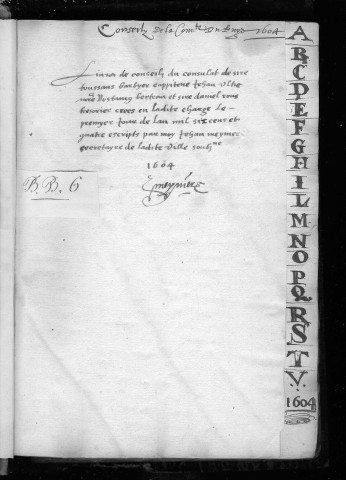 Conseils de la Comté du Buys 1604
Livre de conseilh du consulat de sire
toussans barbyer cappitene Jehan
Bertran et me daniel
entrés en ladite charge le
premyer Jour de lan mil six cens et
quatre escripts par moy Jehan meynier
secretayre de ladite ville
1604
meynier
D.D. 6
A
B
C
D
E
F
G
H
I
L
M
N
O
P
Q
R
S
T
V
1604